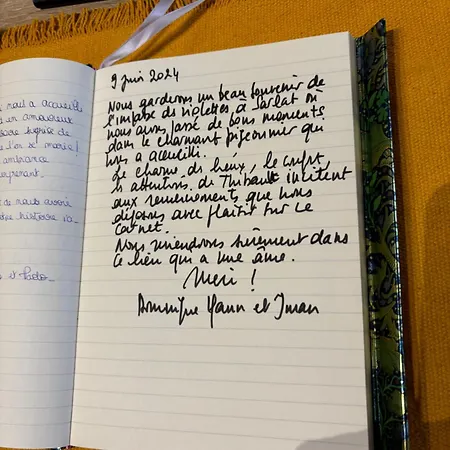 nous a accueillis
en amoureux
ambiance
9 juin 2024
Nous garderons un beau souvenir de
l'impasse des violettes à Sarlat où
nous avons passé de bons moments
dans le charmant pigeonnier qui
nous a accueilli.
Le charme des lieux, le confort,
les attentions de Thibault incitent
aux remerciements que nous
déposons avec plaisir sur ce
carnet.
Nous reviendrons sûrement dans
ce lieu qui a une âme.
Merci !
Dominique Yann et Iman